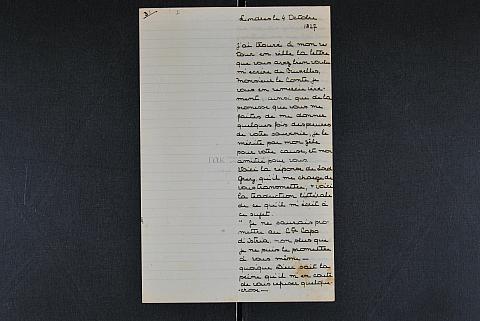 3/
Londres le 4 Octobre
1827
J'ai trouvé à mon re
tour en ville la lettre
que vous avez bien voulu
m'écrire de Bruxelles,
monsieur le Comte, je
vous en remercie sincère-
ment, ainsi que de la
promesse que vous me
faites de me donner
quelques fois des preuves
de votre souvenir, je le
mérite par mon zèle
pour votre cause, et mon
amitié pour vous
Voici la réponse de Lord
Grey, qu'il me charge de
vous transmettre, voici
la traduction littérale
de ce qu'il m'écrit à
ce sujet.
" Je ne saurais pro
mettre au Cte Capo
d'Istria, non plus que
je ne puis le promettre
à vous même —
quoique Dieu sait la
peine qu'il m'en coute
de vous refuser quelque
chose —